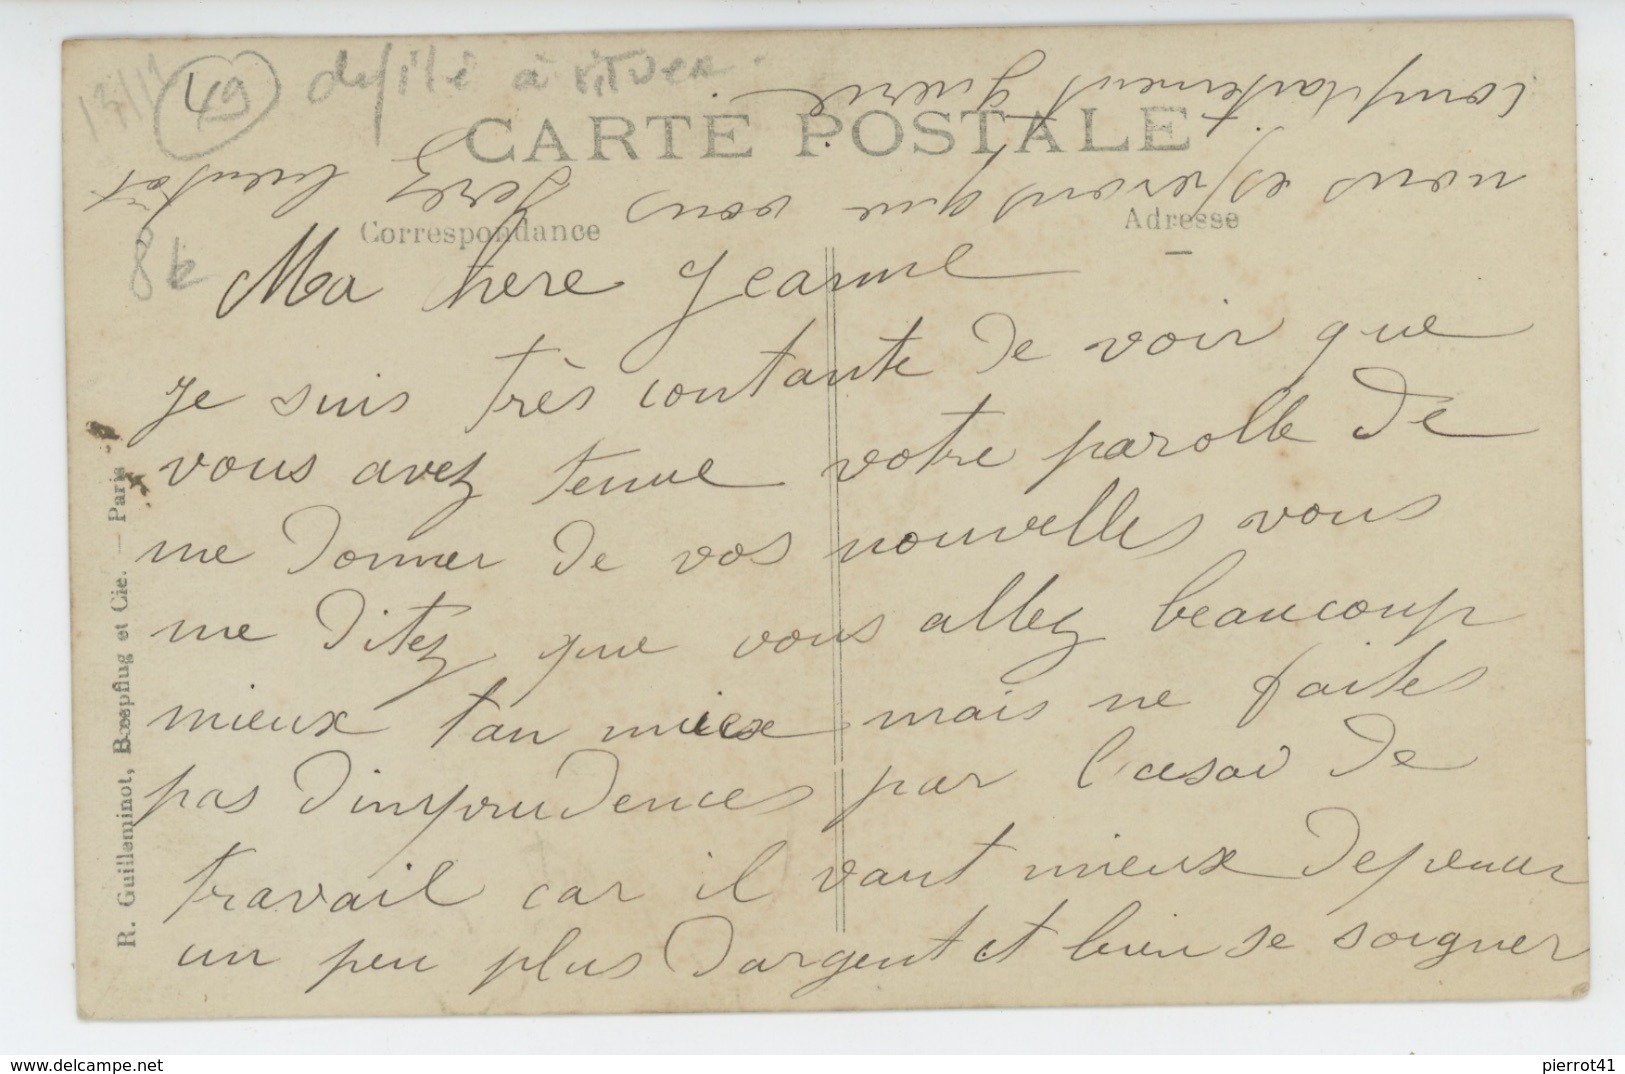 49
défilé à
8k
CARTE POSTALE
Correspondance
Adresse
Ma chere Jeanne
Je suis très contante de voir que
vous avez tenue votre parolle de
me donner de vos nouvelles vous
me ditez que vous allez beaucoup
mieux tan mieux mais ne faites
pas d'imprudences par l'
de
travail car il vaut mieux depenser
un peu plus d'argent et bien se soigner
nous esperons que vous serez bientot
complaitement guerie
R. Guilleminot, Bœspflug et Cie. — Paris
www.delcampe.net
pierrot41